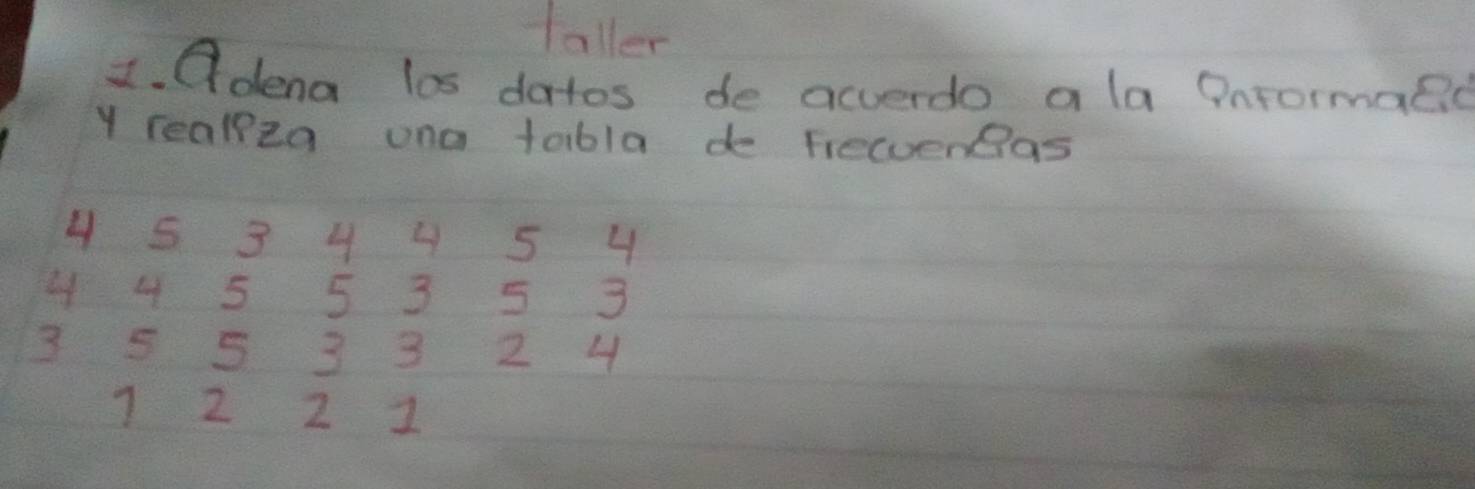 taller
1. Ordena los datos de acuerdo a la
y realiza una tabla de frecuencias
4 5 3 4 4 5 4
4 4 5 5 3 5 3
3 5 5 3 3 2 4
1 2 2 1